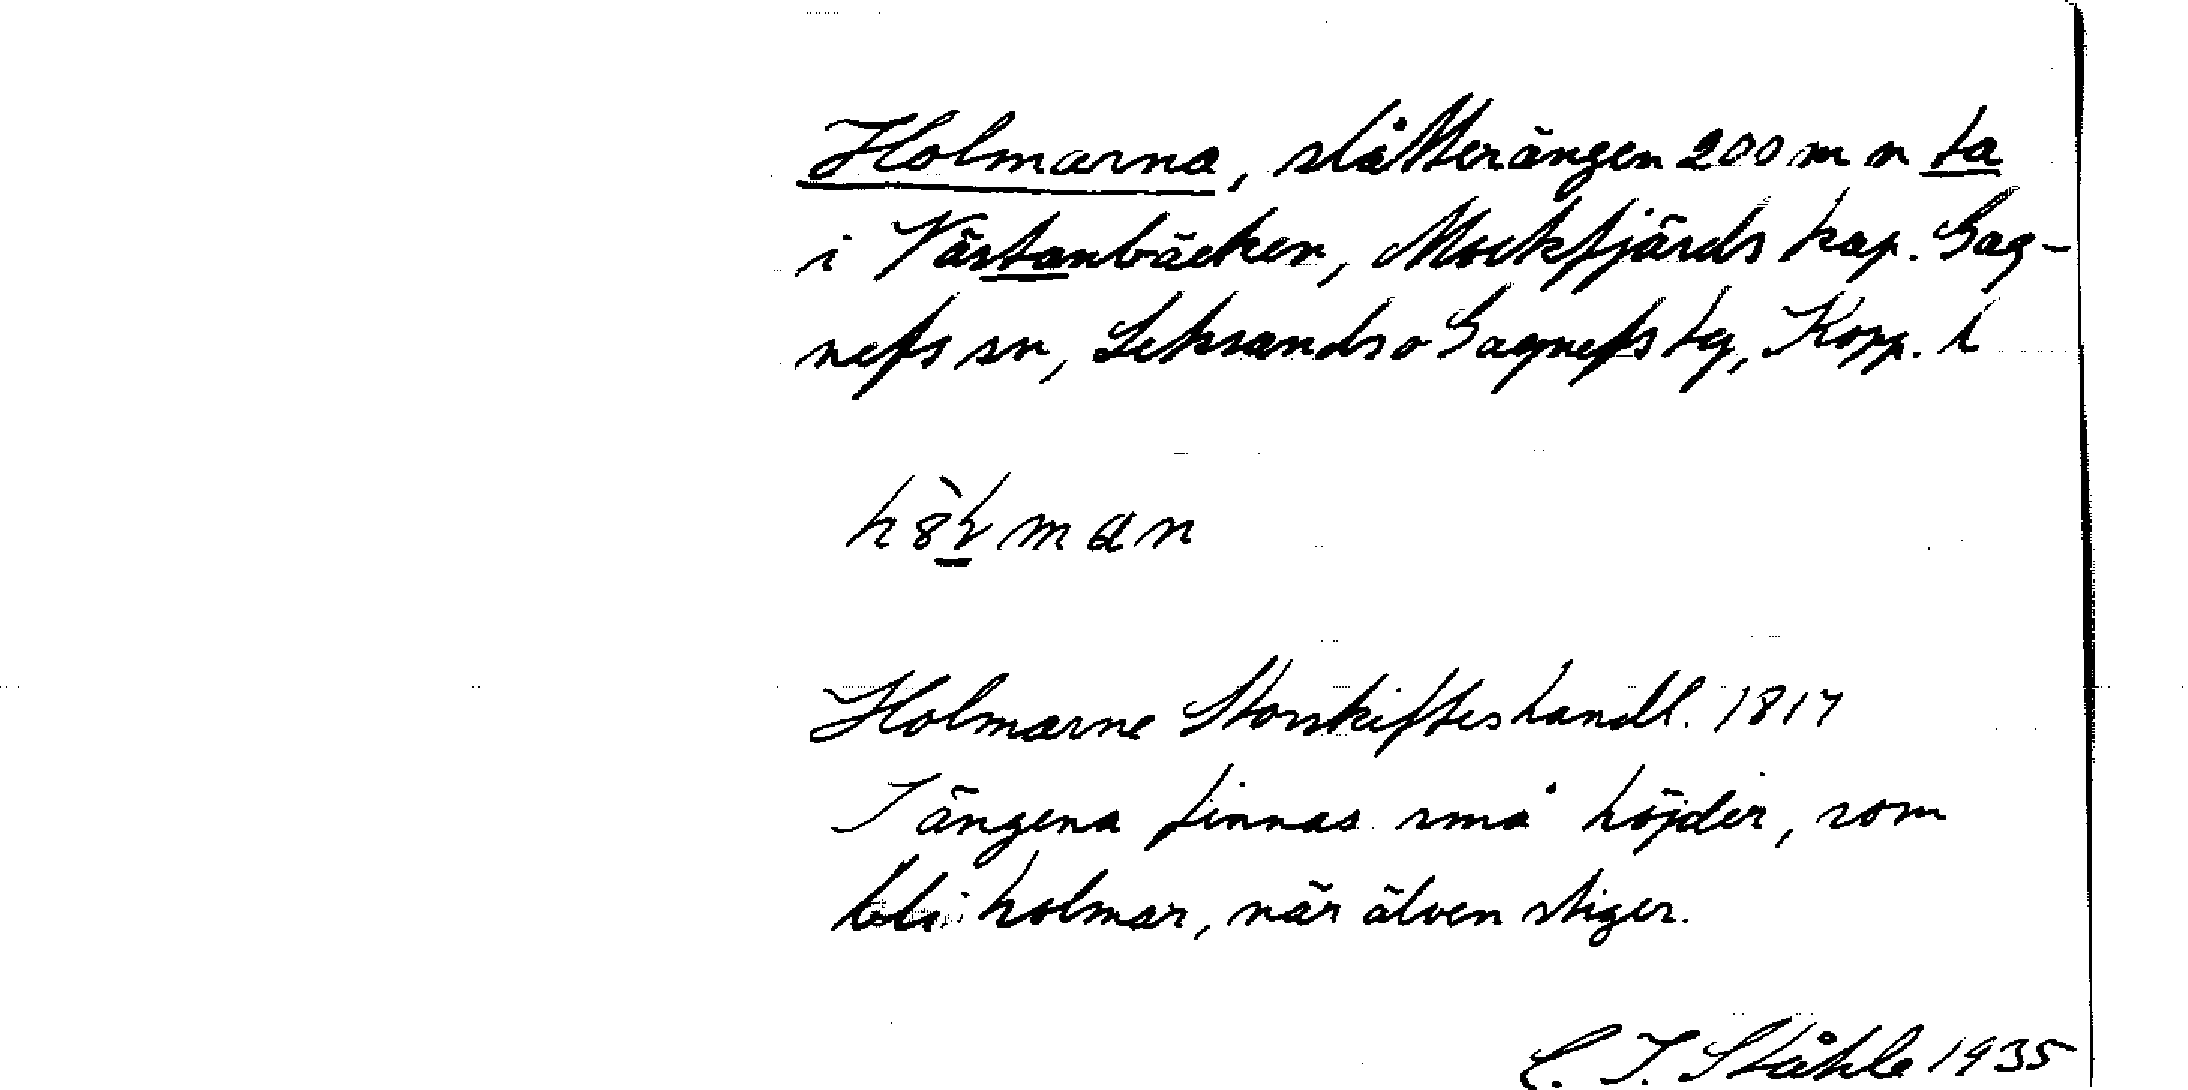 Holmarna, slåtterängen 200 m n ta
i Västanbäcken, Mockfjärds kap. Gag-
nefs sn, Leksands o Gagnefs tg, Kopp. l
Holmarne Storskifteshandl. 1817
I ängena finnas små höjder, som
bli holmar, när älven stiger.
C. I. Ståhle 1935